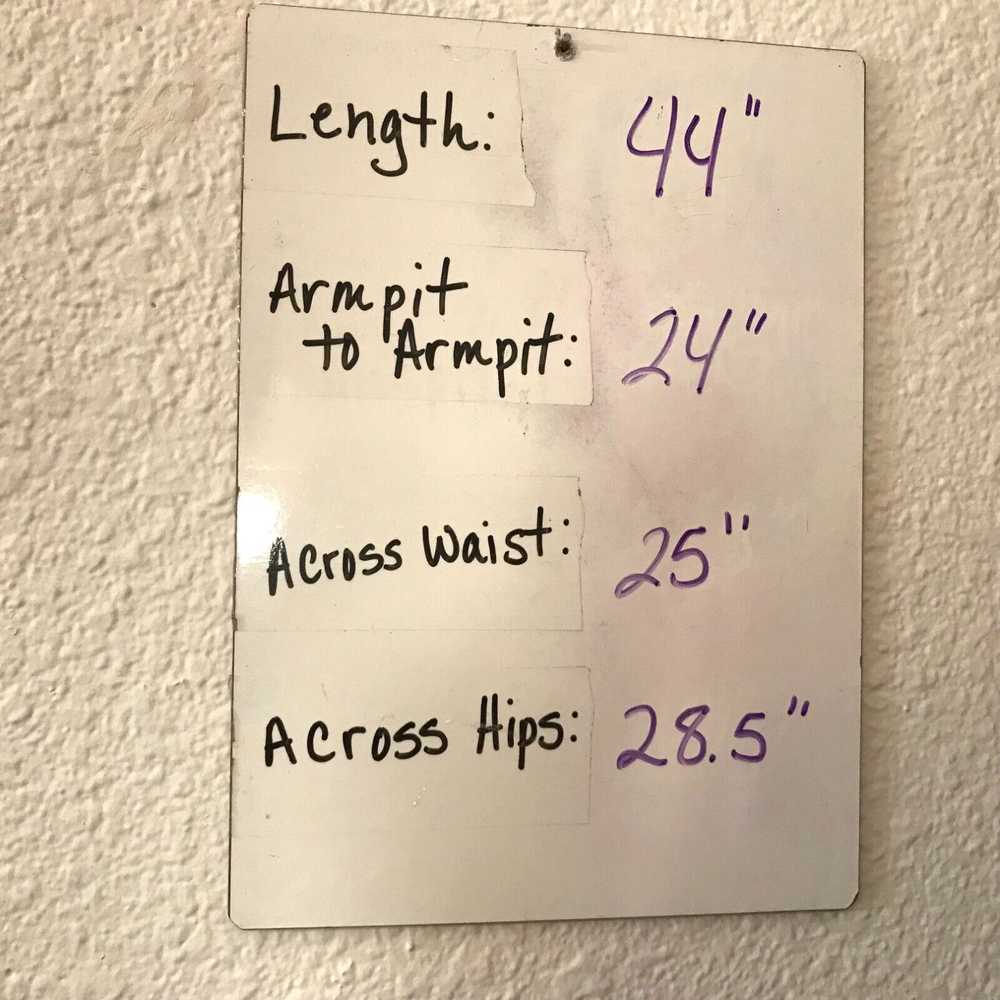 Length: 44"
Armpit
to Armpit: 24"
Across Waist: 25"
Across Hips: 28.5"